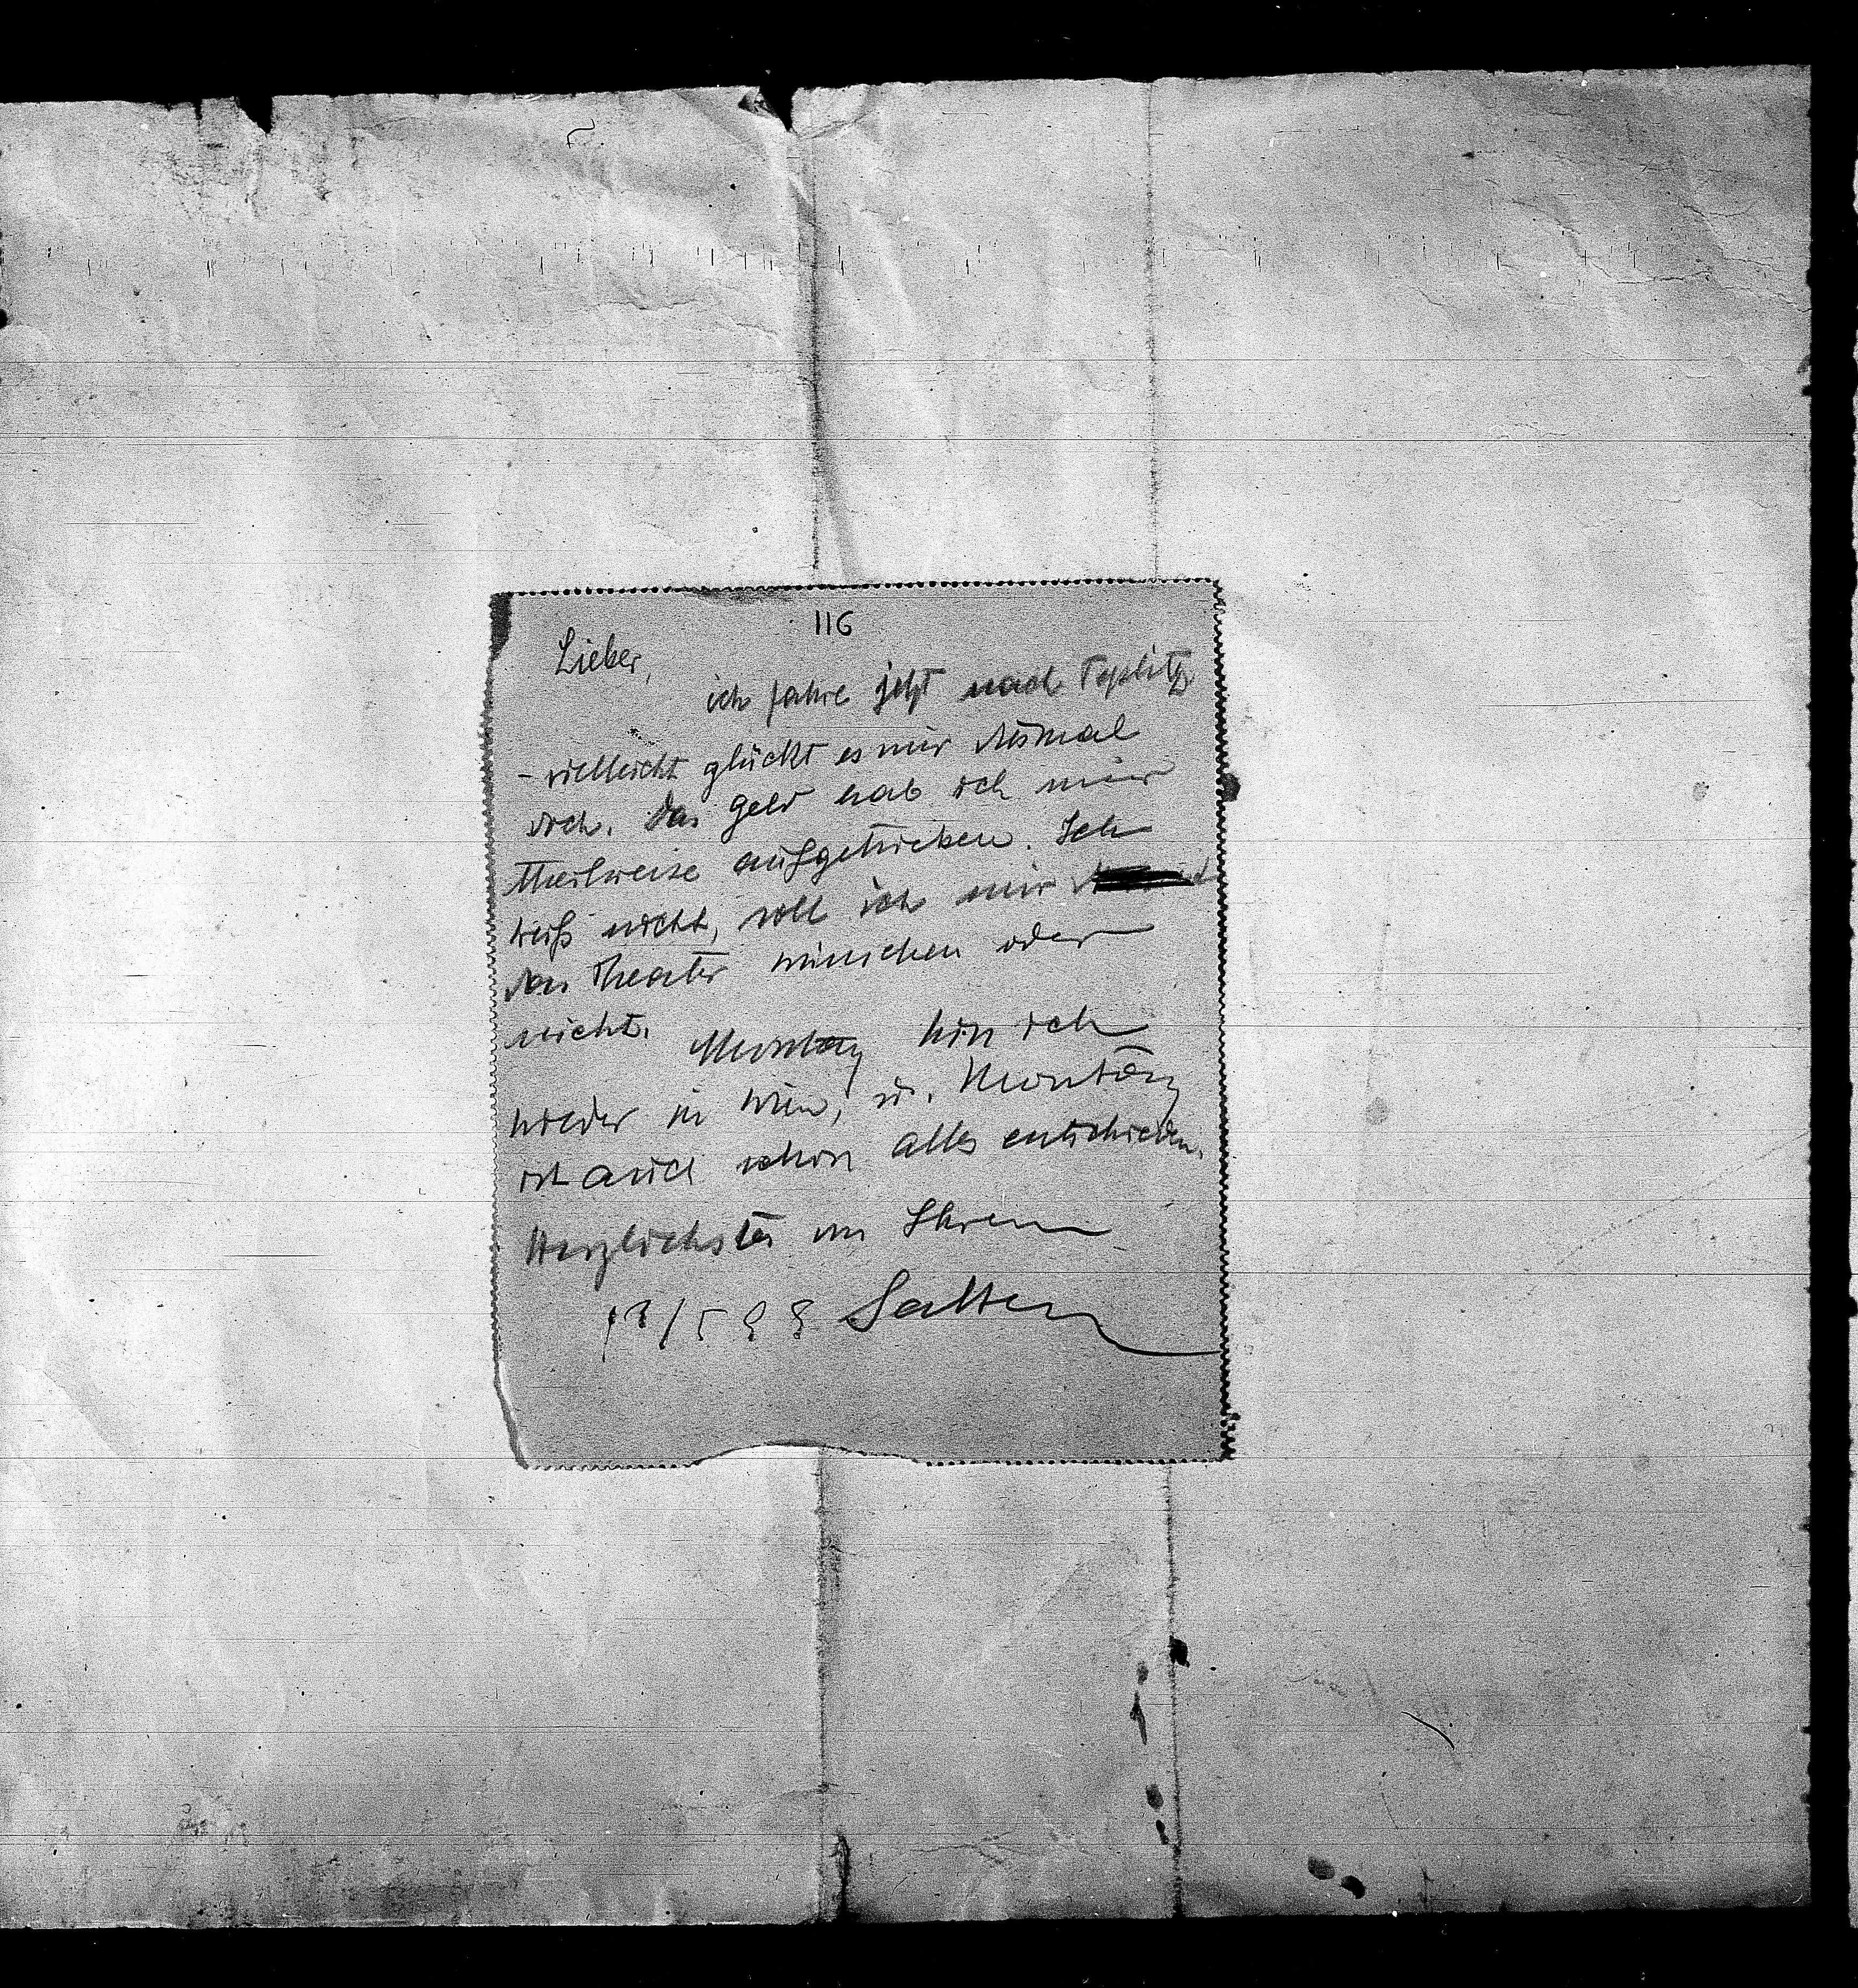 116
Lieber,
ich fahre jetzt nach Teplitz
– vielleicht glückt es mir diesmal
doch. Das Geld hab ich mir
theilweise aufgetrieben. Ich
weiß nicht, soll ich mir
das Theater wünschen oder
nicht. Montag bin ich
wieder in Wien, u. Montag
ist auch schon alles entschieden.
Herzlichstes von Ihrem
Salten